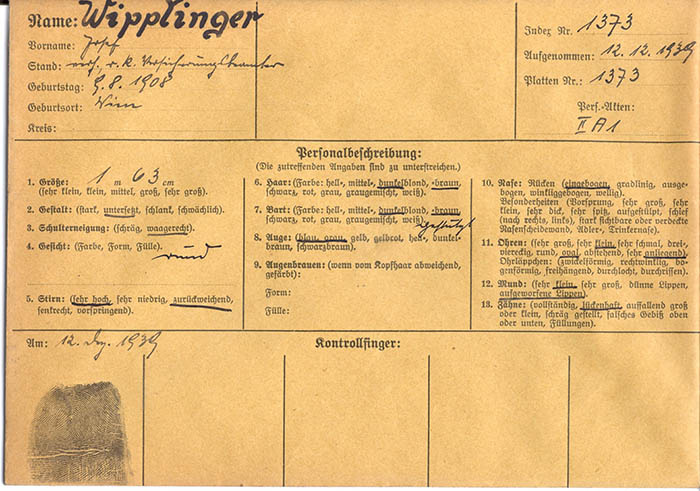 Name: Wipplinger
Vorname: Josef
Stand: verh. r. k. Versicherungsbeamter
Geburtstag: 9. 8. 1908
Geburtsort: Wien
Kreis:
Index Nr. 1373
Aufgenommen: 12. 12. 1939
Platten Nr.: 1373
Pers.-Akten:
II A 1
Personalbeschreibung:
(Die zutreffenden Angaben sind zu unterstreichen.)
1. Größe: 1 m 63 cm
(sehr klein, klein, mittel, groß, sehr groß).
2. Gestalt: (stark, untersetzt, schlank, schwächlich).
3. Schulterneigung: (schräg, waagerecht).
4. Gesicht: (Farbe, Form, Fülle).
rund
5. Stirn: (sehr hoch, sehr niedrig, zurückweichend,
senkrecht, vorspringend).
6. Haar: (Farbe: hell-, mittel-, dunkelblond, -braun,
schwarz, rot, grau, graugemischt, weiß).
7. Bart: (Farbe: hell-, mittel-, dunkelblond, -braun,
schwarz, rot, grau, graugemischt, weiß)
gestutzt
8. Auge: (blau, grau, gelb, gelbrot, hell-, dunkel-
braun, schwarzbraun).
9. Augenbrauen: (wenn vom Kopfhaar abweichend,
gefärbt):
Form:
Fülle:
10. Nase: Rücken (eingebogen, gradlinig, ausge-
bogen, winkliggebogen, wellig).
Besonderheiten (Vorsprung, sehr groß, sehr
klein, sehr dick, sehr spitz, aufgestülpt, schief
(nach rechts, links), stark sichtbare oder verdeckte
Nasenscheidewand, Adler-, Trinkernase).
11. Ohren: (sehr groß, sehr klein, sehr schmal, drei-
viereckig, rund, oval, abstehend, sehr anliegend).
Ohrläppchen: (zwickelförmig, rechtwinklig, bo-
genförmig, freihängend, durchlocht, durchrissen).
12. Mund: (sehr klein, sehr groß, dünne Lippen,
aufgeworfene Lippen).
13. Zähne: (vollständig, lückenhaft, auffallend groß
oder klein, schräg gestellt, falsches Gebiß oben
oder unten, Füllungen).
Am: 12. Dez. 1939
Kontrollfinger: